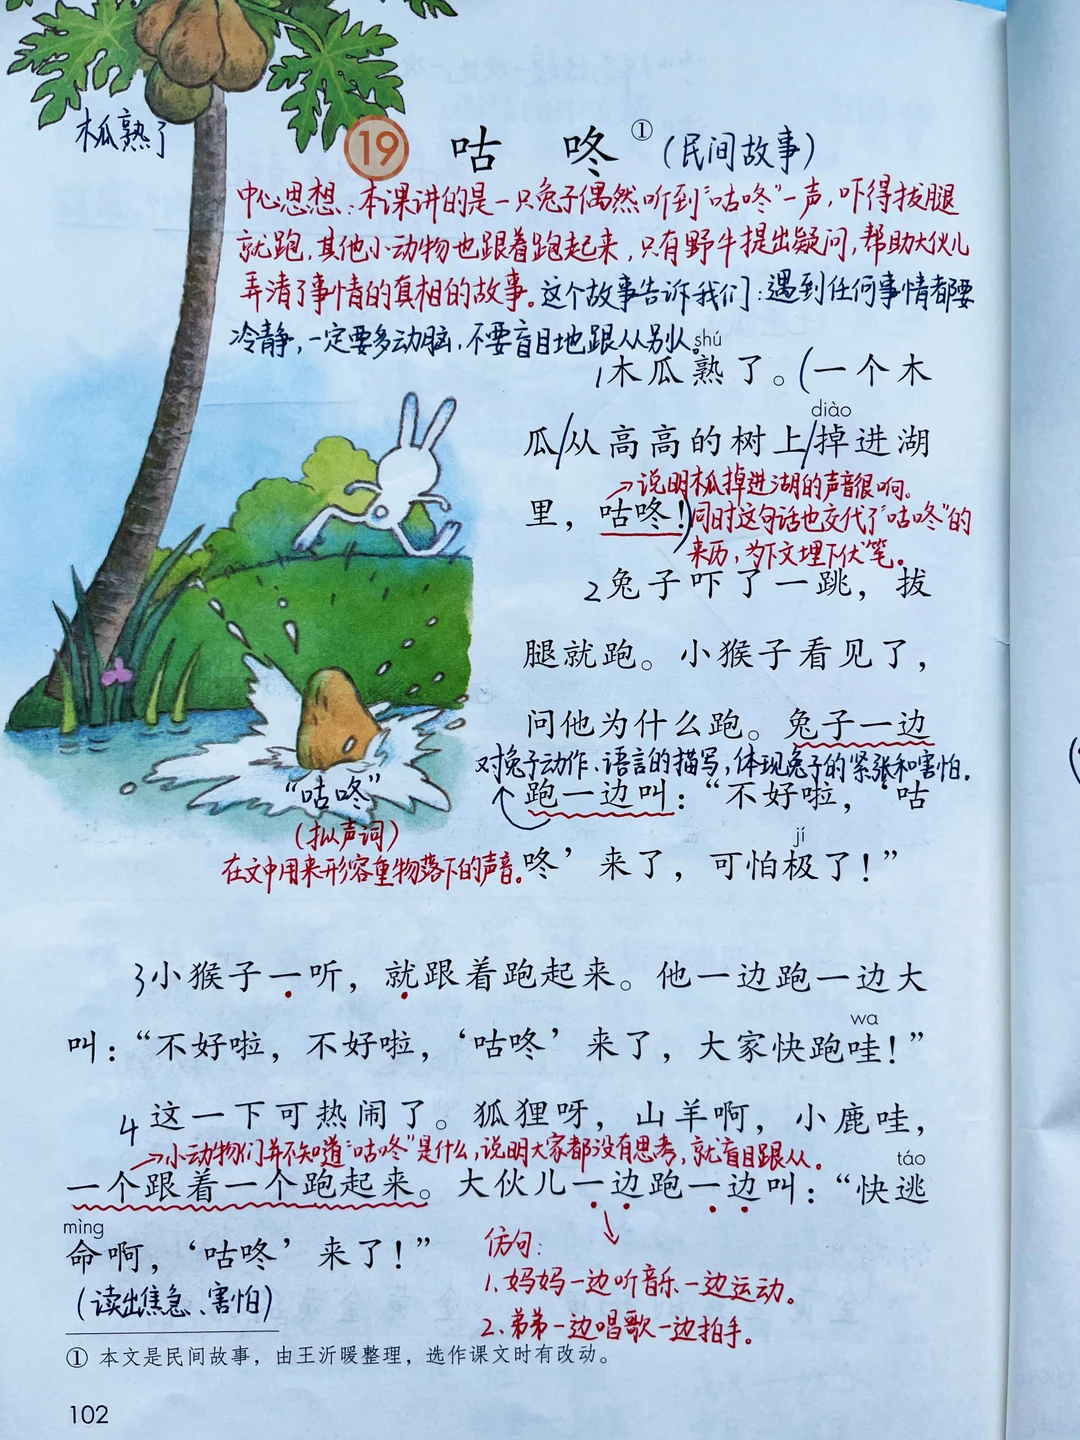 木瓜熟了
19 咕 咚 ① (民间故事)
中心思想：本课讲的是一只兔子偶然听到“咕咚”一声，吓得拔腿
就跑，其他小动物也跟着跑起来，只有野牛提出疑问，帮助大伙儿
弄清了事情的真相的故事。这个故事告诉我们：遇到任何事情都要
冷静，一定要多动脑，不要盲目地跟从别人。
shú
1木瓜熟了。(一个木
diào
瓜/从高高的树上/掉进湖
→说明木瓜掉进湖的声音很响。
里，咕咚！)同时这句话也交代了“咕咚”的
来历，为下文埋下伏笔。
2兔子吓了一跳，拔
腿就跑。小猴子看见了，
问他为什么跑。兔子一边
对兔子动作、语言的描写，体现兔子的紧张和害怕。
跑一边叫：“不好啦，‘咕
jí
咚’来了，可怕极了！”
“咕咚”
(拟声词)
在文中用来形容重物落下的声音。
3小猴子一听，就跟着跑起来。他一边跑一边大
wa
叫：“不好啦，不好啦，‘咕咚’来了，大家快跑哇！”
4这一下可热闹了。狐狸呀，山羊啊，小鹿哇，
→小动物们并不知道“咕咚”是什么，说明大家都没有思考，就盲目跟从。
táo
一个跟着一个跑起来。大伙儿一边跑一边叫：“快逃
mìng
命啊，‘咕咚’来了！”
(读出焦急、害怕)
仿句：
1.妈妈一边听音乐一边运动。
2.弟弟一边唱歌一边拍手。
① 本文是民间故事，由王沂暖整理，选作课文时有改动。
102